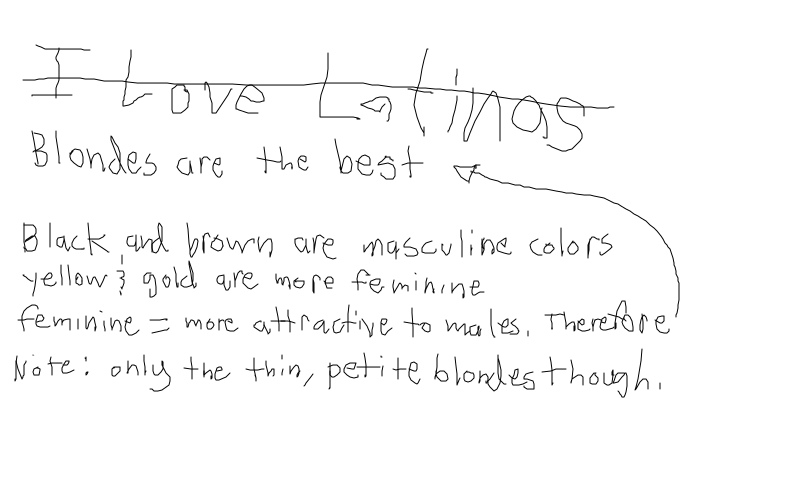 I Love Latinas
Blondes are the best
Black and brown are masculine colors
yellow & gold are more feminine
feminine = more attractive to males. Therefore
Note: only the thin, petite blondes though.